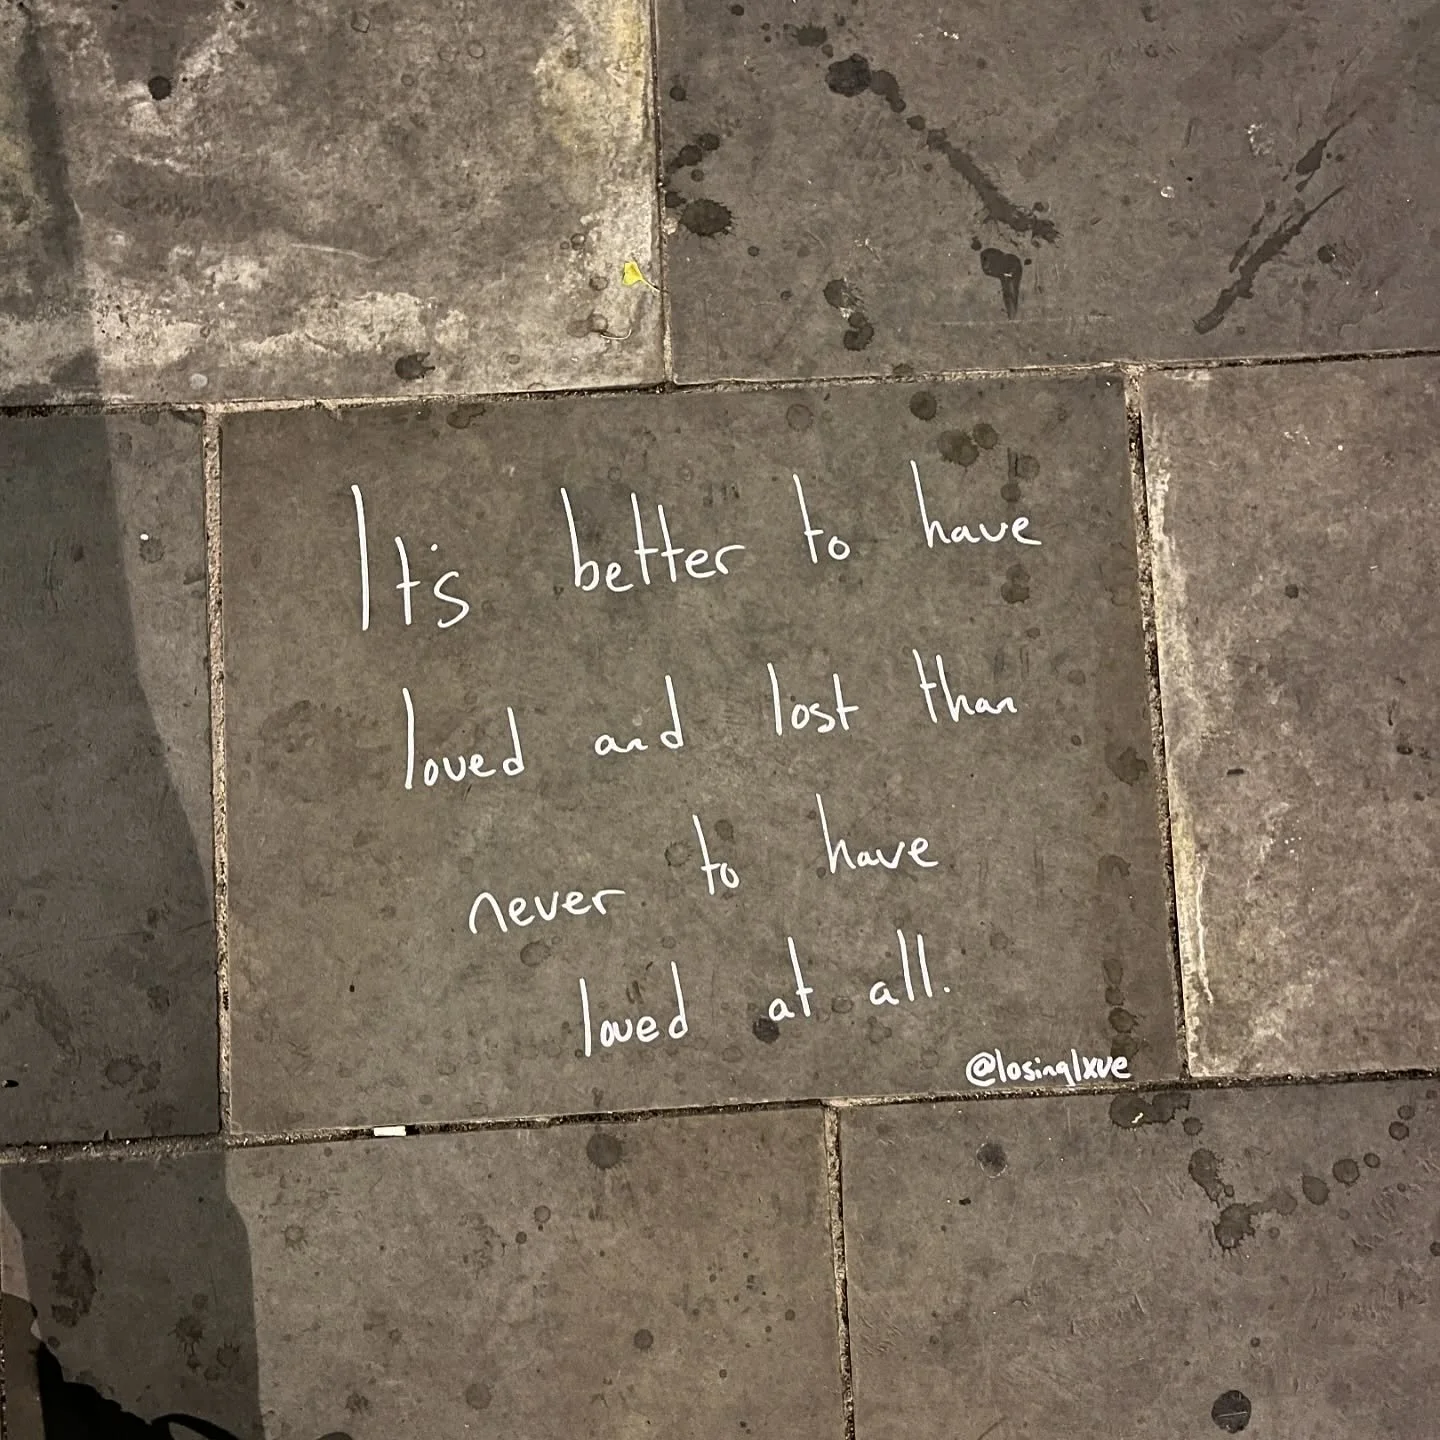 It's better to have
loved and lost than
never to have
loved at all.
@losinglxve